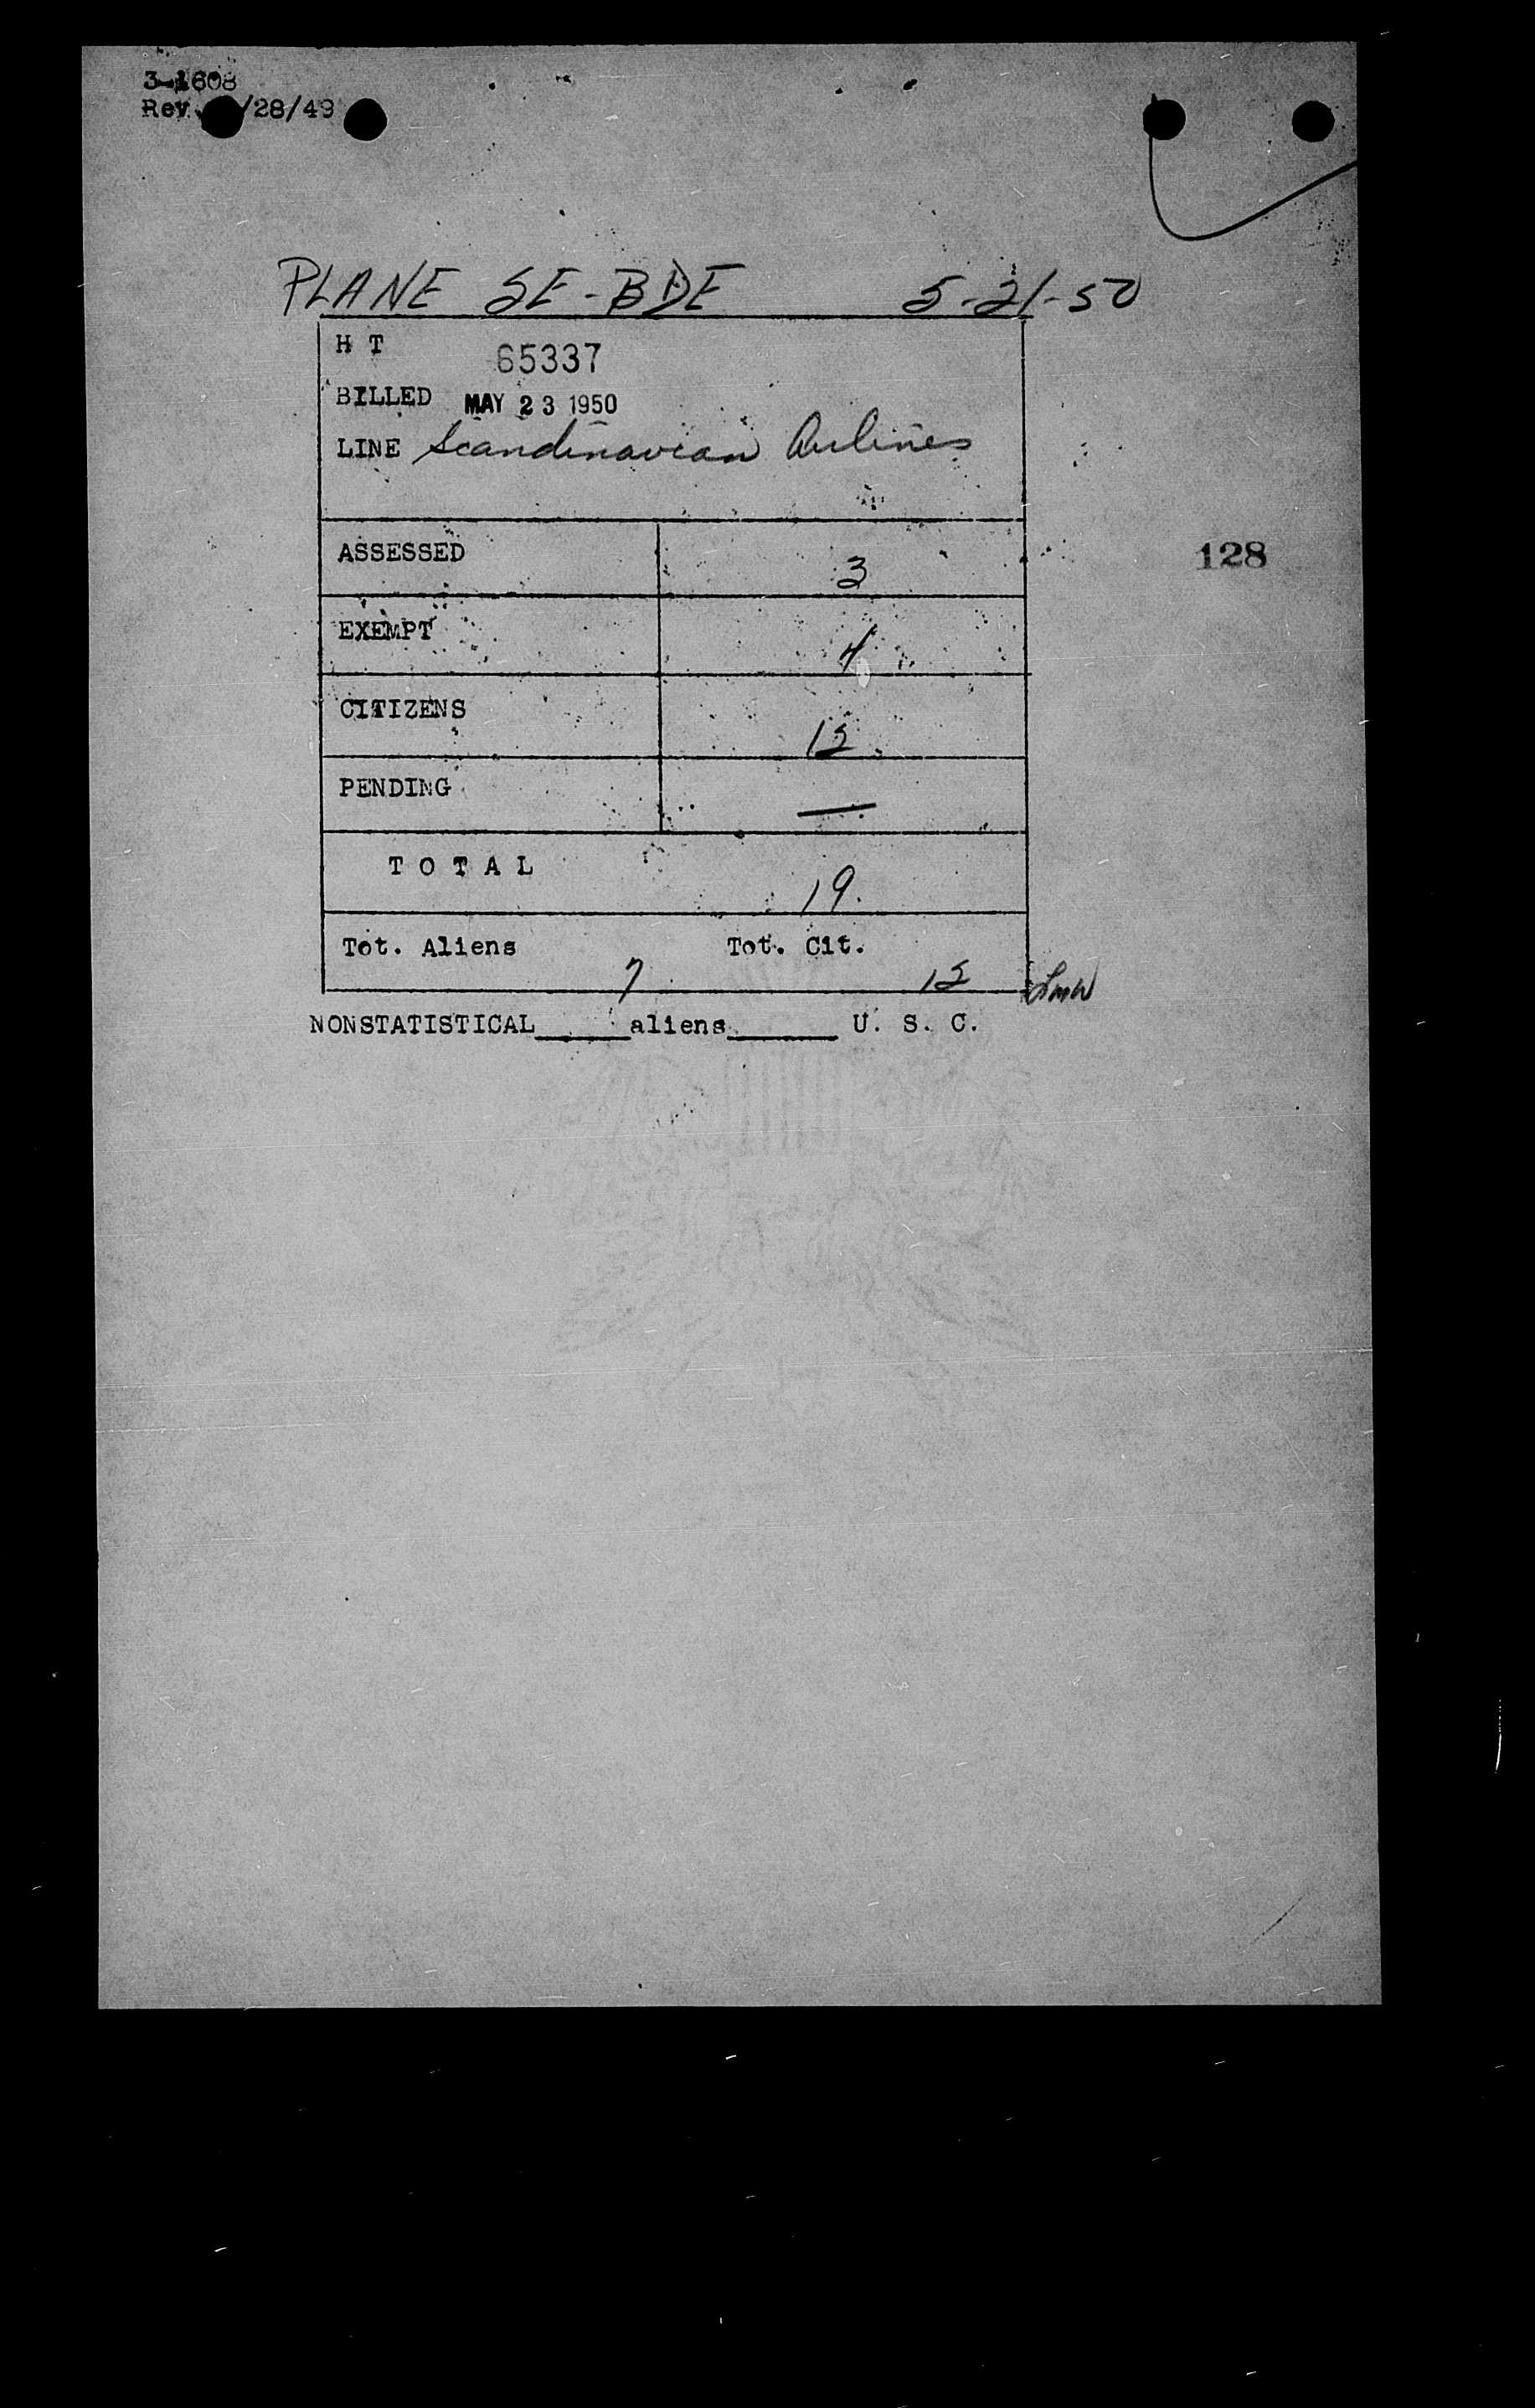 3-1608
Rev. /28/49
PLANE SE-BDE 5-21-50
H T 65337
BILLED MAY 23 1950
LINE Scandinavian Airlines
ASSESSED 3
128
EXEMPT 4
CITIZENS 12
PENDING —
TOTAL 19.
Tot. Aliens 7 Tot. Cit. 12
NONSTATISTICAL____aliens____ U. S. C.